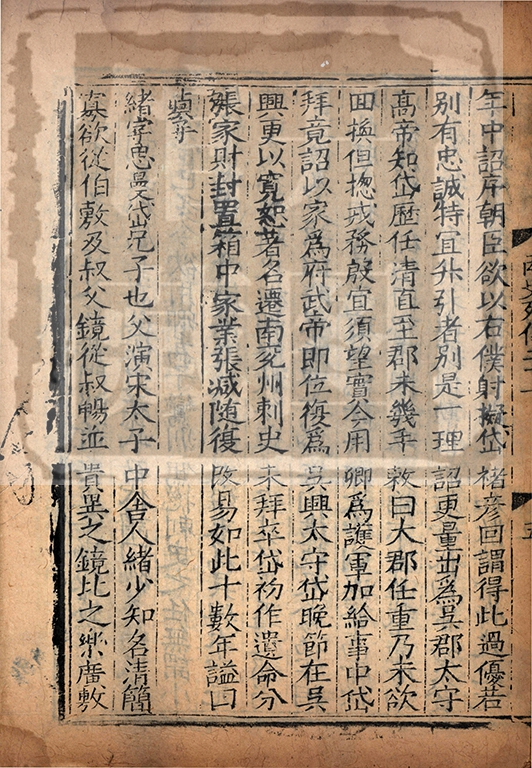 年中詔序朝臣欲以右僕射擬岱褚彦回謂得此過優若
別有忠誠特宜升引者別是一理詔更量出爲吳郡太守
髙帝知岱歷任清直至郡未幾手敕曰大郡任重乃未欲
回換但揔戎務殷宜須望實今用卿爲護軍加給事中岱
拜竟詔以家爲府武帝即位復爲吳興太守岱晚節在吳
興更以寬恕著名遷南兖州刺史未拜卒岱初作遺命分
張家財封置箱中家業張减随復改易如此十數年謚曰
貞子
緒字思曼岱兄子也父演宋太子中舍人緒少知名清簡
寡欲從伯敷及叔父鏡從叔暢並貴異之鏡比之樂廣敷